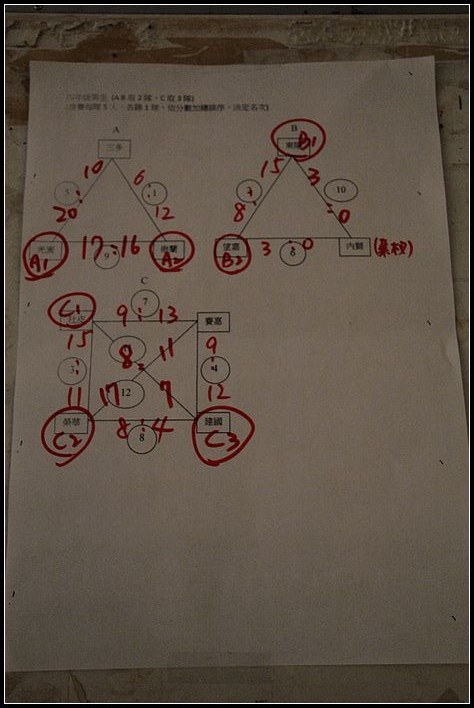 四年級男生 (A.B 取 2 隊、C 取 3 隊)
A
三多
10
6
5
:
1
:
20
12
17 : 16
9
A1
A2
B
B1
15
3
3
:
10
:
8
0
望嘉
3 : 0
6
內獅
(棄权)
B2
C
7
C1
9 : 13
賽嘉
15
8
:
11
9
3
:
4
:
11
17
12
7
12
8 : 4
8
建國
C2
C3